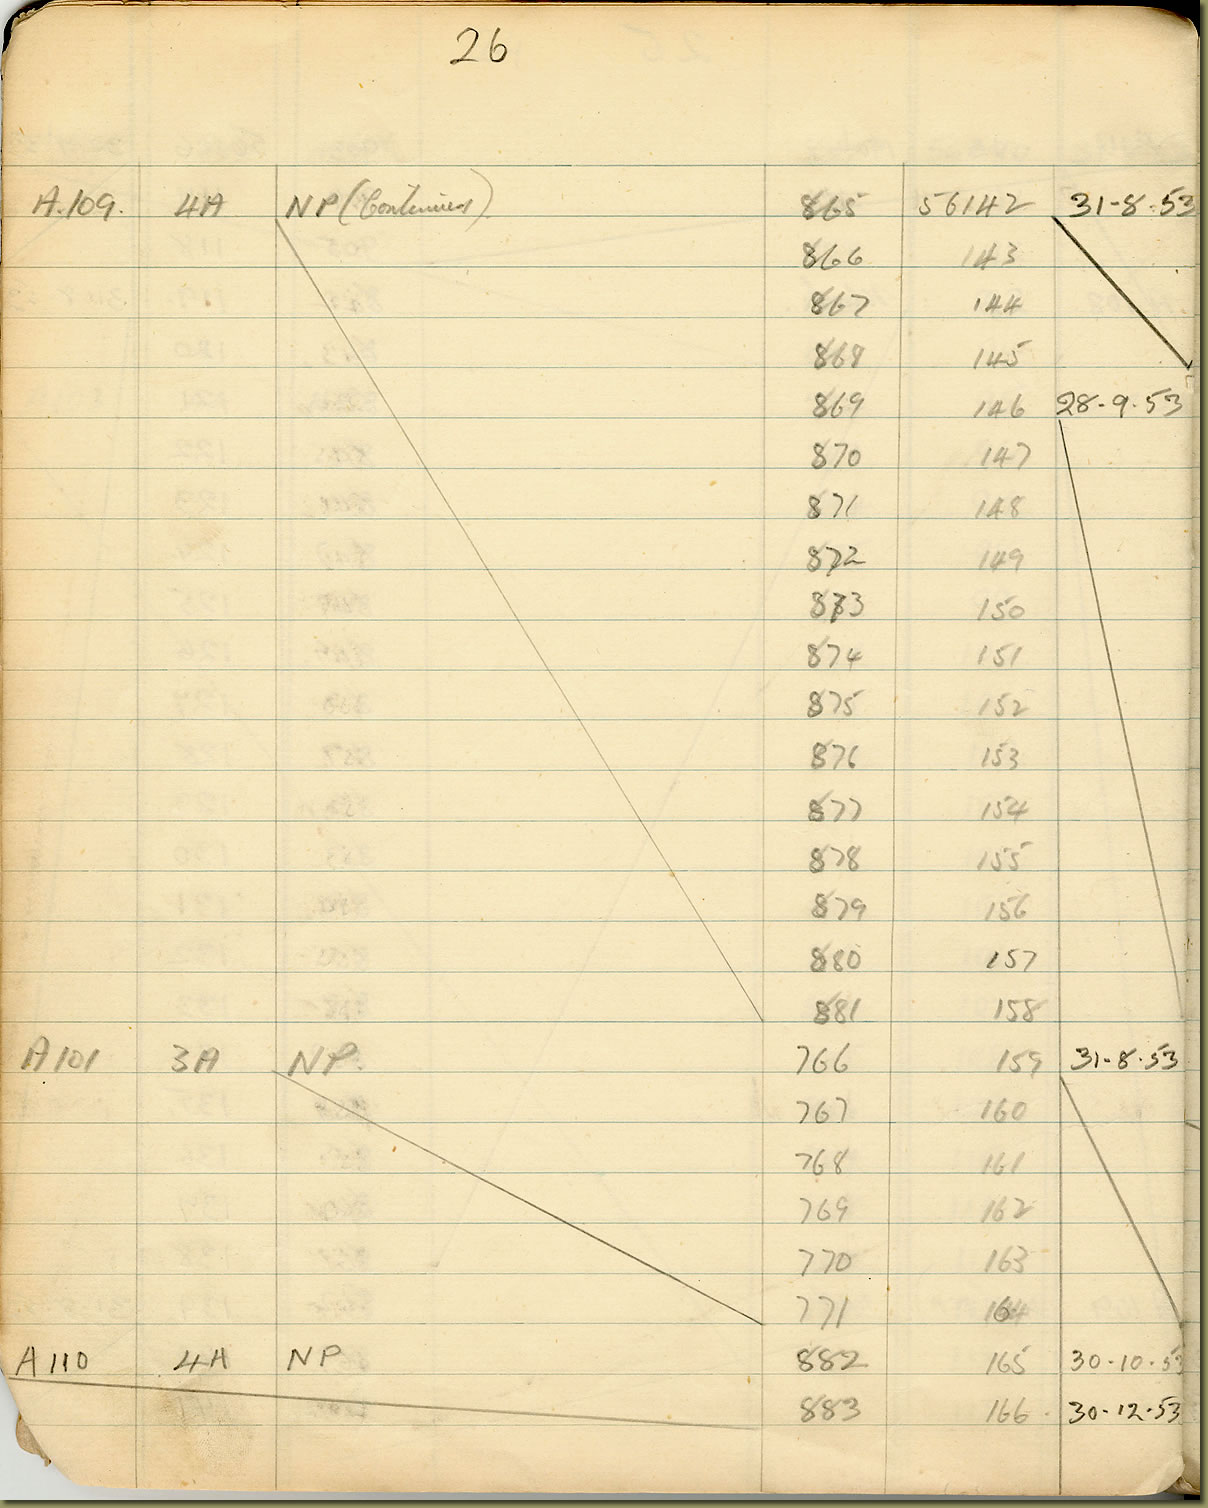 26
A.109. 4A NP (Continued) 865 56142 31-8-53
866 143
867 144
868 145
869 146 28-9-53
870 147
871 148
872 149
873 150
874 151
875 152
876 153
877 154
878 155
879 156
880 157
881 158
A101 3A NP. 766 159 31-8-53
767 160
768 161
769 162
770 163
771 164
A110 4A NP 882 165 30-10-53
883 166 30-12-53